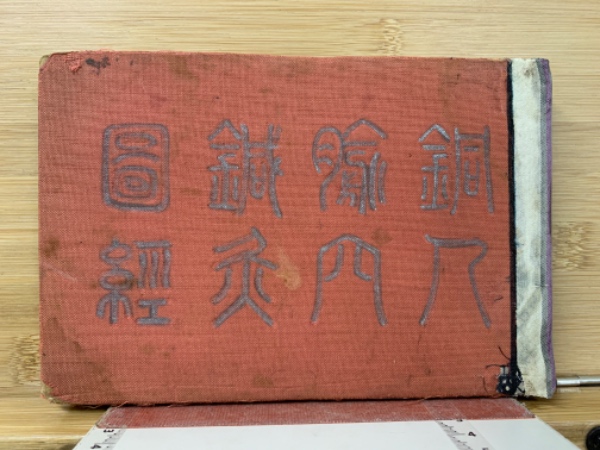 銅人
腧穴
鍼灸
圖經